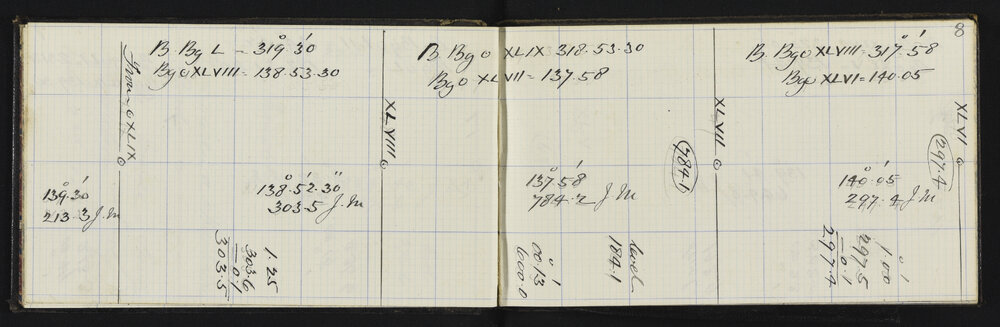 8
B. Bg L = 319° 30'
Bg o XLVIII = 138.53.30
B Bg o XLIX 318.53.30
Bg o XLVII = 137.58
B. Bg o XLVIII = 317° 58'
Bg o XLVI = 140.05
XLIX
XLVIII
XLVII
XLVI
139° 30'
213.3 J.M
138° 52' 30"
303.5 J.M
137° 58'
784.2 J M
784.1
140° 05'
297.4 J M
297.4
1.25
303.6
0.1
303.5
level
184.1
00° 13'
600.0
1° 00'
297.5
0.1
297.4